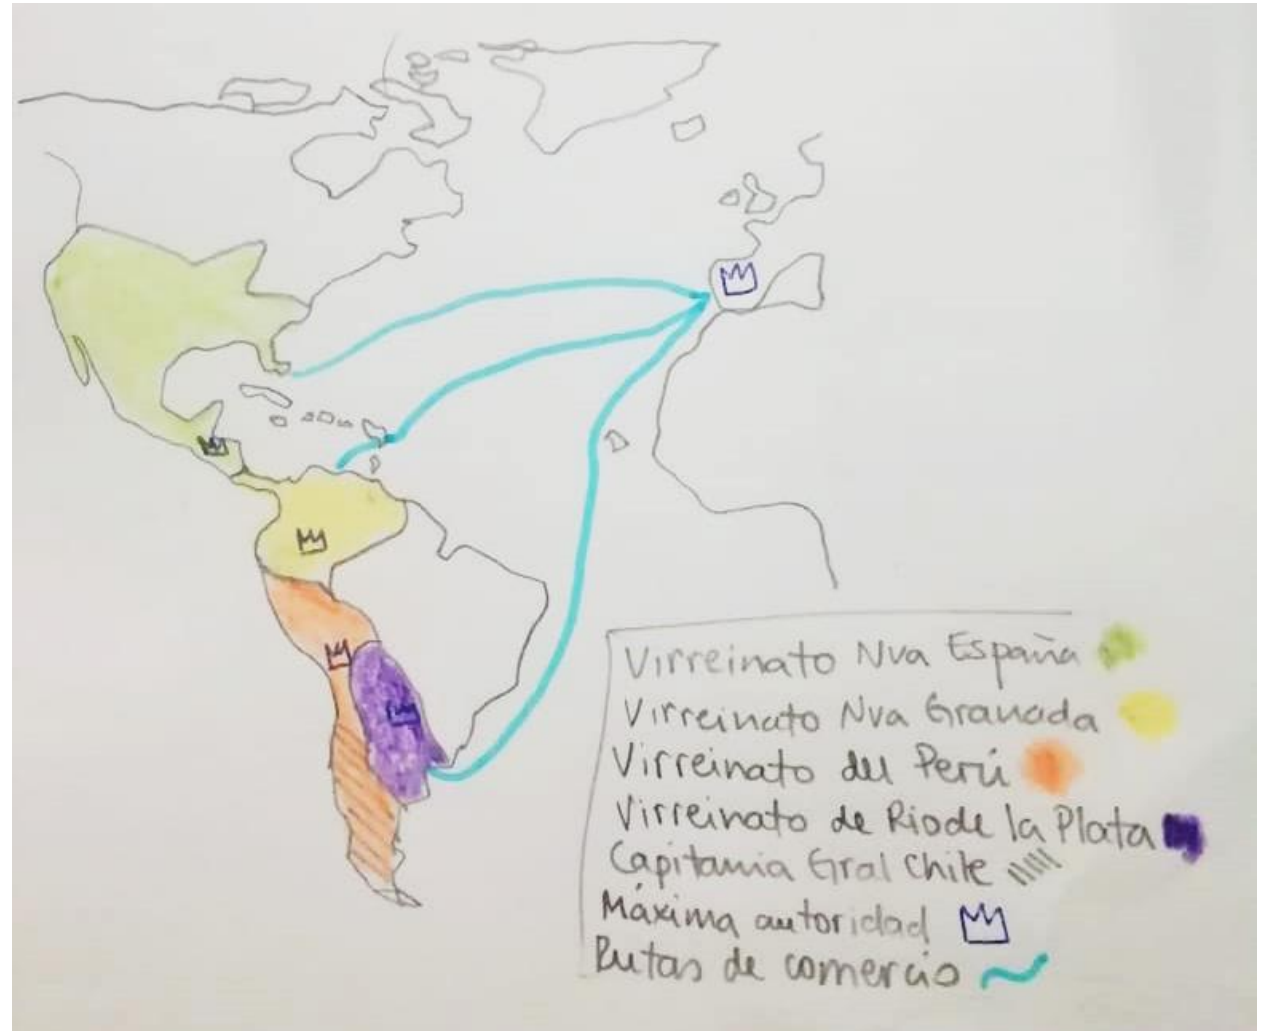 Virreinato Nva España
Virreinato Nva Granada
Virreinato del Perú
Virreinato de Rio de la Plata
Capitania Gral Chile
Máxima autoridad
Rutas de comercio